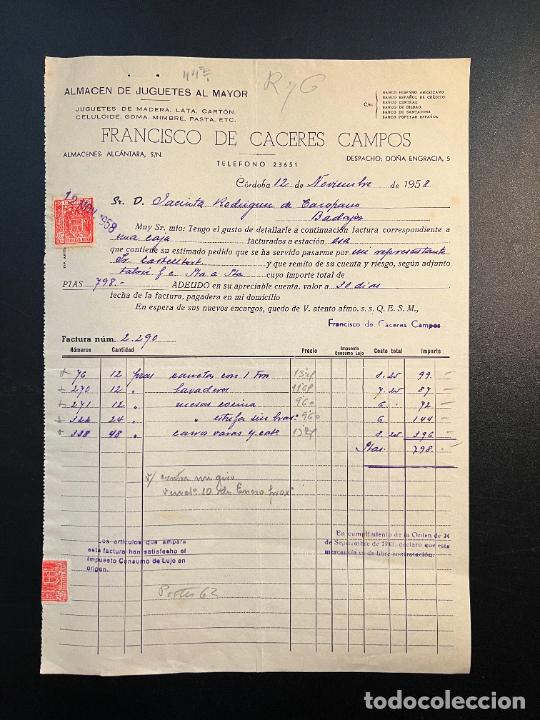 R y G
ALMACEN DE JUGUETES AL MAYOR
JUGUETES DE MADERA, LATA, CARTÓN,
CELULOIDE, GOMA, MIMBRE, PASTA, ETC.
C/c.
BANCO HISPANO AMERICANO
BANCO ESPAÑOL DE CRÉDITO
BANCO CENTRAL
BANCO DE BILBAO
BANCO DE SANTANDER
BANCO POPULAR ESPAÑOL
FRANCISCO DE CACERES CAMPOS
ALMACENES ALCÁNTARA, S/N.
DESPACHO: DOÑA ENGRACIA, 5
TELEFONO 23651
Córdoba 12 de Noviembre de 1958
NOV 1958
Sr. D. Jacinta Rodriguez de
Badajoz
Muy Sr. mío: Tengo el gusto de detallarle a continuación factura correspondiente a
una caja facturadas a estación esa
que contiene su estimado pedido que se ha servido pasarme por mi representante
Sr. Castellort y que remito de su cuenta y riesgo, según adjunto
cuyo importe total de
PTAS 798.- ADEUDO en su apreciable cuenta, valor a 30 dias
fecha de la factura, pagadera en mi domicilio
En espera de sus nuevos encargos, quedo de V. atento afmo. s. s. Q. E. S. M.,
Francisco de Cáceres Campos
Factura núm. 2.290
Números Cantidad Precio Impuesto Consumo Lujo Costo total Importe
76 12 con 1 8.25 99.-
270 12 " lavaderos 7.25 87-
271 12 " mesas cocina 960 6 72-
24 " 960 6 144-
338 48 " carros varas y 8.25 396-
Ptas. 798.-
10 de Enero
Los artículos que ampara
esta factura han satisfecho el
Impuesto Consumo de Lujo en
origen.
En cumplimiento de la Orden de 24
de Septiembre de declaro que esta
mercancía es de libre contratación.
Portes 62
todocoleccion
todocoleccion.net